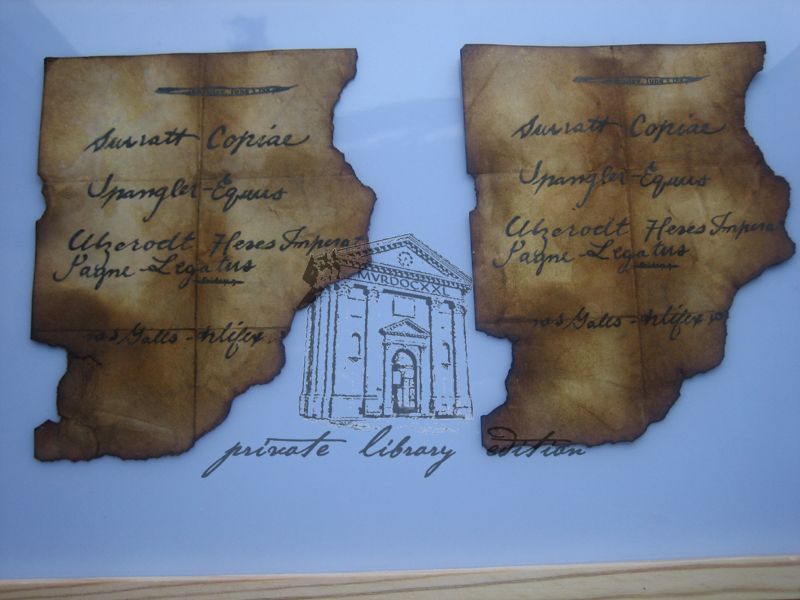 Surratt Copiae
Spangler-Equus
Atzerodt Heres Impera
Payne-Legatus
Galls-Artifex
Surratt Copiae
Spangler-Equus
Atzerodt Heres Impera
Payne-Legatus
Galls-Artifex
MVRDOCXXL
private library edition